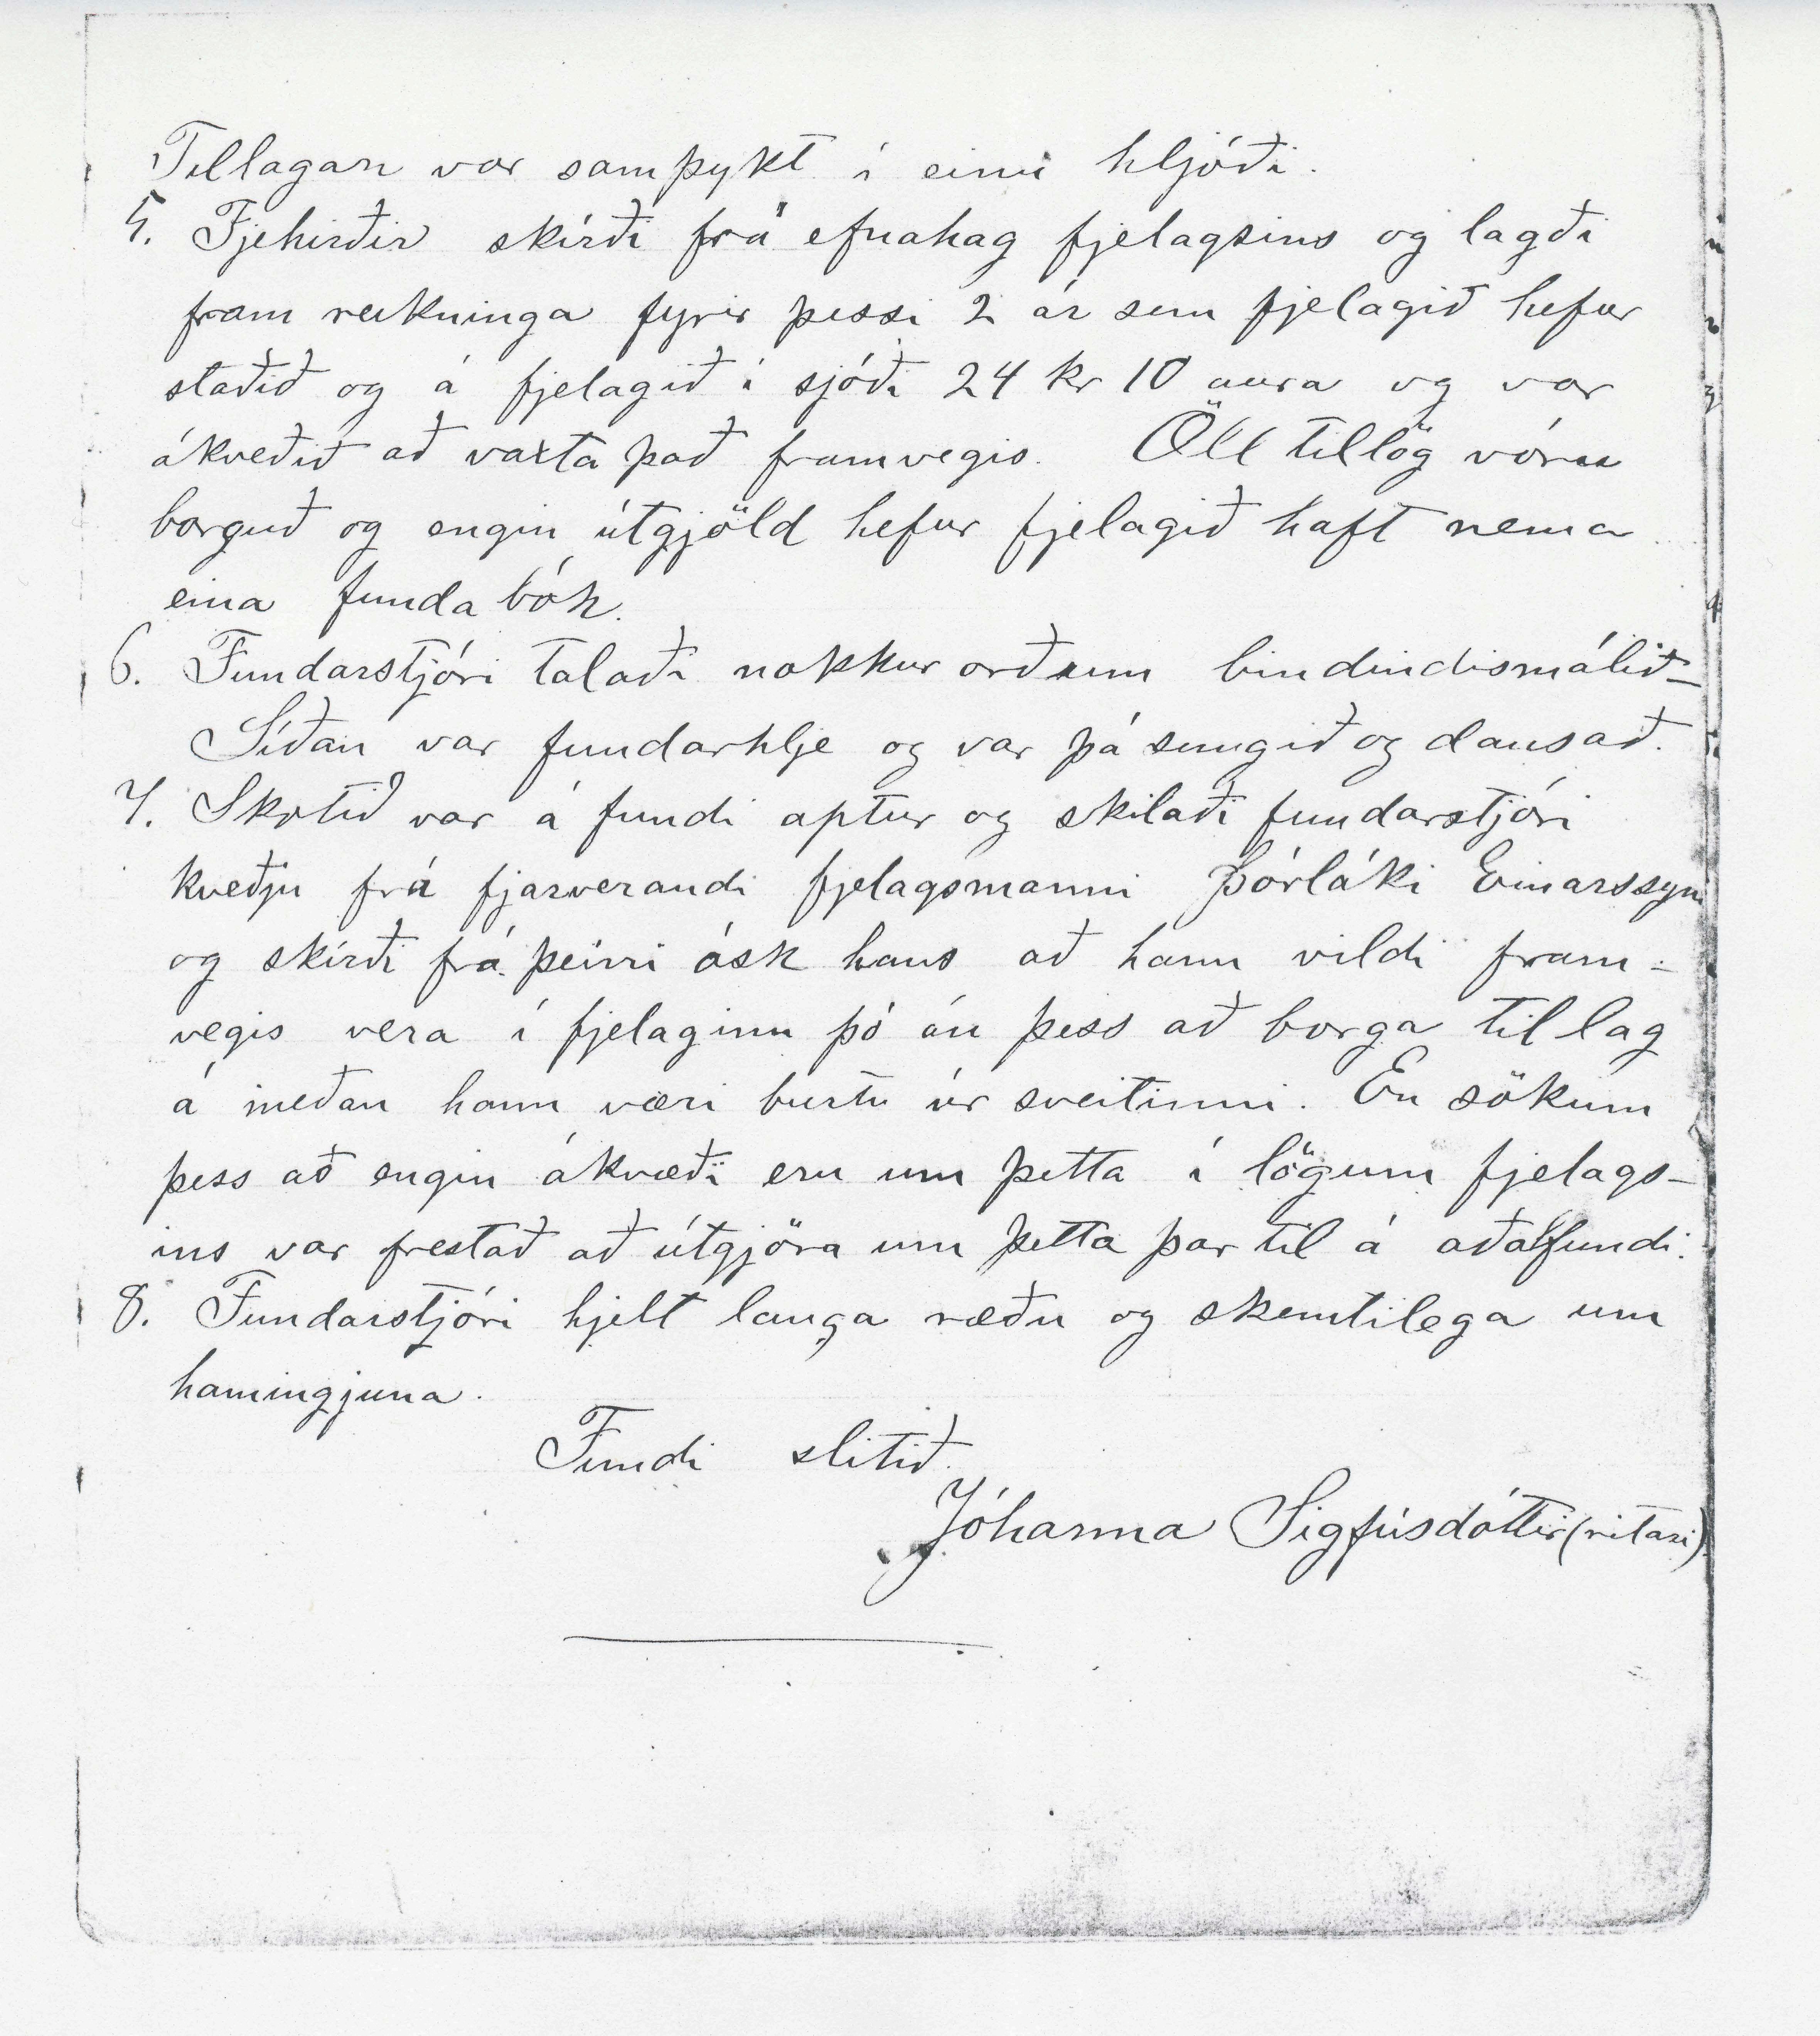 Tillagan var samþykt í einu hljóði.
5. Fjehirðir skírði frá efnahag fjelagsins og lagði
fram reikninga fyrir þessi 2 ár sem fjelagið hefur
staðið og á fjelagið í sjóði 24 kr 10 aura og var
ákveðið að vaxta það framvegis. Öll tillög vóru
borguð og engin útgjöld hefur fjelagið haft nema
eina funda bók.
6. Fundarstjóri talaði nokkur orð um bindindismálið-
Síðan var fundarhlje og var þá sungið og dansað.
7. Skotið var á fundi aptur og skilaði fundarstjóri
kveðju frá fjarverandi fjelagsmanni Þórláki Einarssyni
og skírði frá þeirri ósk hans að hann vildi fram-
vegis vera í fjelaginu þó án þess að borga tillag
á meðan hann væri burtu úr sveitinni. En sökum
þess að engin ákvæði eru um þetta í lögum fjelags-
ins var frestað að útgjöra um þetta þar til á aðalfundi.
8. Fundarstjóri hjelt langa ræðu og skemtilega um
hamingjuna.
Fundi slitið.
Jóhanna Sigfúsdóttir (ritari)